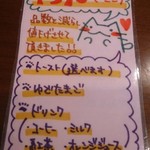 品数を減らし
値下げさせて
頂きました
トースト(選べます)
ゆでたまご
ドリンク
・コーヒー・ミルク
・紅茶・オレンジジュース